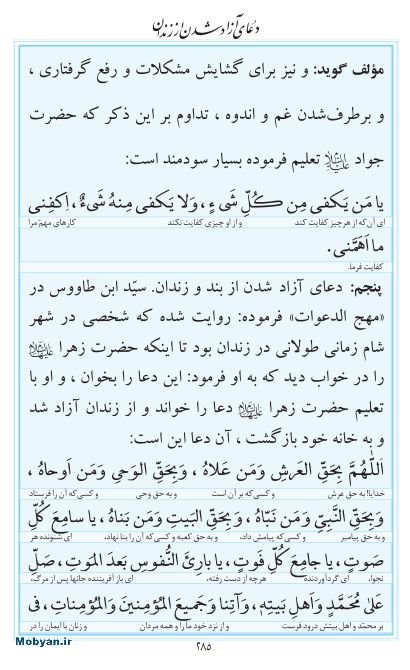 دعای آزاد شدن از زندان
مؤلف گوید: و نیز برای گشایش مشکلات و رفع گرفتاری ،
و برطرف‌شدن غم و اندوه ، تداوم بر این ذکر که حضرت
جواد علیه‌السلام تعلیم فرموده بسیار سودمند است:
یا مَن یَکفی مِن کُلِّ شَیءٍ، وَلا یَکفی مِنهُ شَیءٌ، اِکفِنی
ای آن‌که از هر چیز کفایت کند و از او چیزی کفایت نکند کارهای مهمّ مرا
ما اَهَمَّنی.
کفایت فرما.
پنجم: دعای آزاد شدن از بند و زندان. سیّد ابن طاووس در
«مهج الدعوات» فرموده: روایت شده که شخصی در شهر
شام زمانی طولانی در زندان بود تا اینکه حضرت زهرا علیهاالسلام
را در خواب دید که به او فرمود: این دعا را بخوان ، و او با
تعلیم حضرت زهرا علیهاالسلام دعا را خواند و از زندان آزاد شد
و به خانه خود بازگشت ، آن دعا این است:
اَللّٰهُمَّ بِحَقِّ العَرشِ وَمَن عَلاهُ ، وَبِحَقِّ الوَحیِ وَمَن اَوحاهُ ،
خدایا! به حق عرش و کسی‌که بر آن است و به حق وحی و کسی‌که آن را فرستاد
وَبِحَقِّ النَّبِیِّ وَمَن نَبَّاهُ ، وَبِحَقِّ البَیتِ وَمَن بَناهُ ، یا سامِعَ کُلِّ
و به حقّ پیامبر و کسی‌که پیامش داد، و به حق کعبه و کسی که آن را بنا نهاد، ای شنونده هر
صَوتٍ ، یا جامِعَ کُلِّ فَوتٍ ، یا بارِئَ النُّفوسِ بَعدَ المَوتِ، صَلِّ
نجوا، ای گردآورنده هر چه از دست رفته، ای باز آفریننده جانها پس از مرگ،
عَلیٰ مُحَمَّدٍ وَاَهلِ بَیتِهِ، وَآتِنا وَجَمیعَ المُؤمِنینَ وَالمُؤمِناتِ ، فی
بر محمّد و اهل بیتش درود فرست و از نزد خود ما را و همه مردان و زنان با ایمان را در
۲۸۵
Mobyan.ir